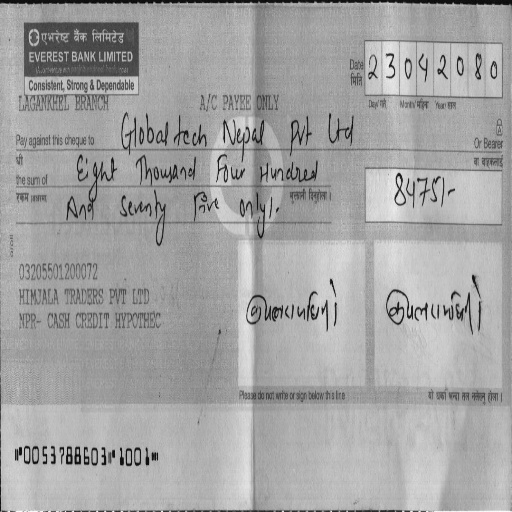 एभरेष्ट बैंक लिमिटेड
EVEREST BANK LIMITED
Consistent, Strong & Dependable
LAGANKHEL BRANCH A/C PAYEE ONLY
Date मिति 23042080
Day/ गते Month/ महिना Year/ साल
Pay against this cheque to Global tech Nepal Pvt Ltd Or Bearer
श्री वा वाहकलाई
the sum of Eight Thousand Four Hundred
रकम And Seventy Five only/. 8475/-
03205501200072
HIMJALA TRADERS PVT LTD
NPR- CASH CREDIT HYPOTHEC
Please do not write or sign below this line
"'0053788603"' 1001"'